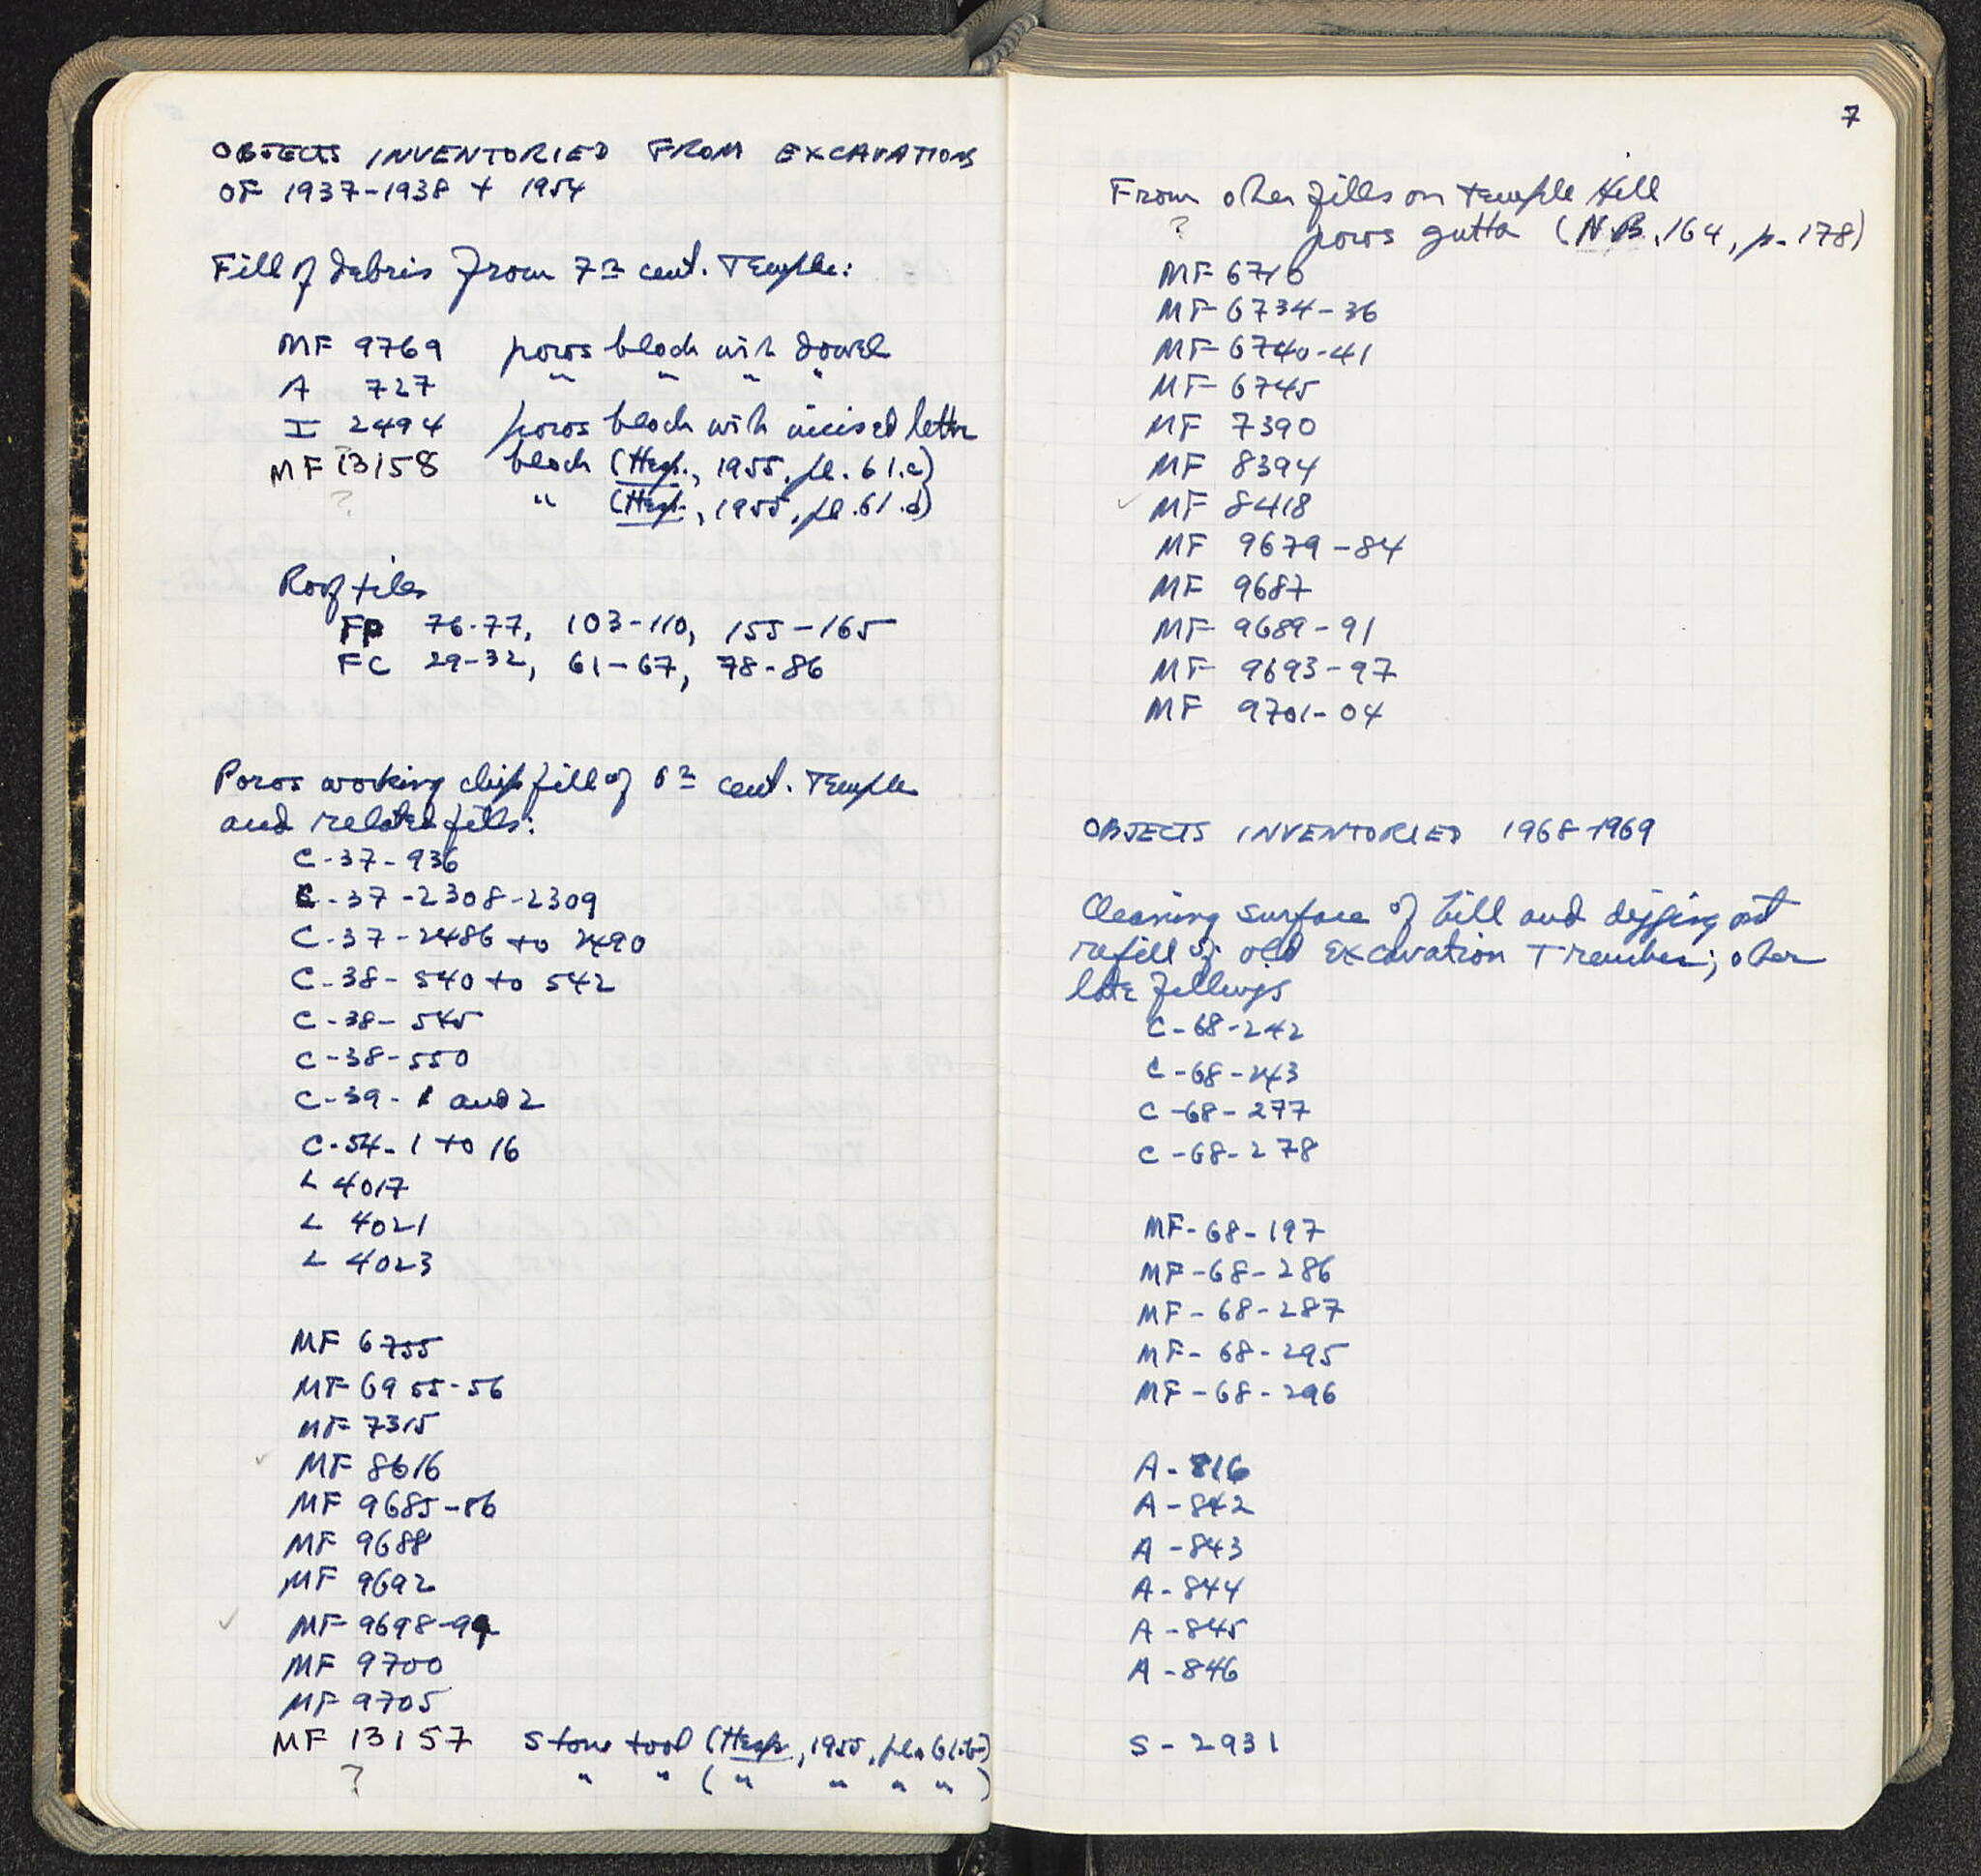 OBJECTS INVENTORIED FROM EXCAVATIONS
OF 1937-1938 + 1954
Fill of debris from 7th cent. Temple:
MF 9769 poros block with dowel
A 727 " " " "
I 2494 poros block with incised letter
MF 13158 block (Hesp., 1955, pl. 61.c)
? " (Hesp., 1955, pl. 61.d)
Roof tiles
FP 76-77, 103-110, 155-165
FC 29-32, 61-67, 78-86
Poros working chip fill of 6th cent. Temple
and related fills:
C-37-936
C-37-2308-2309
C-37-2486 to 2490
C-38-540 to 542
C-38-545
C-38-550
C-39-1 and 2
C-54-1 to 16
L 4017
L 4021
L 4023
MF 6755
MF 6955-56
MF 7315
✓ MF 8616
MF 9685-86
MF 9688
MF 9692
✓ MF 9698-99
MF 9700
MF 9705
MF 13157 Stone tool (Hesp., 1955, pl. 61.b)
? " " ( " " " " )
7
From other fills on Temple Hill
? poros gutta (N.B. 164, p. 178)
MF 6710
MF 6734-36
MF 6740-41
MF 6745
MF 7390
MF 8394
✓ MF 8418
MF 9679-84
MF 9687
MF 9689-91
MF 9693-97
MF 9701-04
OBJECTS INVENTORIED 1968-1969
Cleaning surface of hill and digging out
refill of old excavation Trenches; other
late fillings
C-68-242
C-68-243
C-68-277
C-68-278
MF-68-197
MF-68-286
MF-68-287
MF-68-295
MF-68-296
A-816
A-842
A-843
A-844
A-845
A-846
S-2931